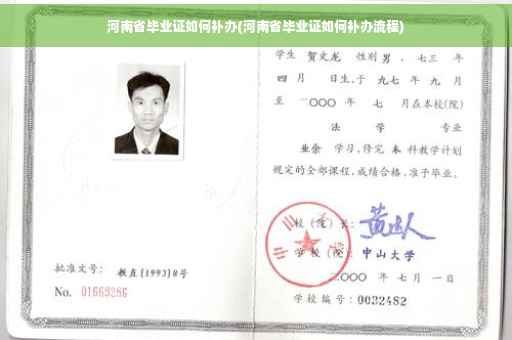 河南省毕业证如何补办(河南省毕业证如何补办流程)
学生 贺文龙 性别 男 、七三 年
四 月 日生,于 九七 年 九 月
至 二〇〇〇 年 七 月在本校(院)
法 学 专业
业余 学习,修完 本 科教学计划
规定的全部课程,成绩合格,准予毕业。
校(院)长:
学校(院): 中山大学
二〇〇〇 年 七 月 一 日
学校编号: 0032482
批准文号: 教直[1993]8号
No. 01669286